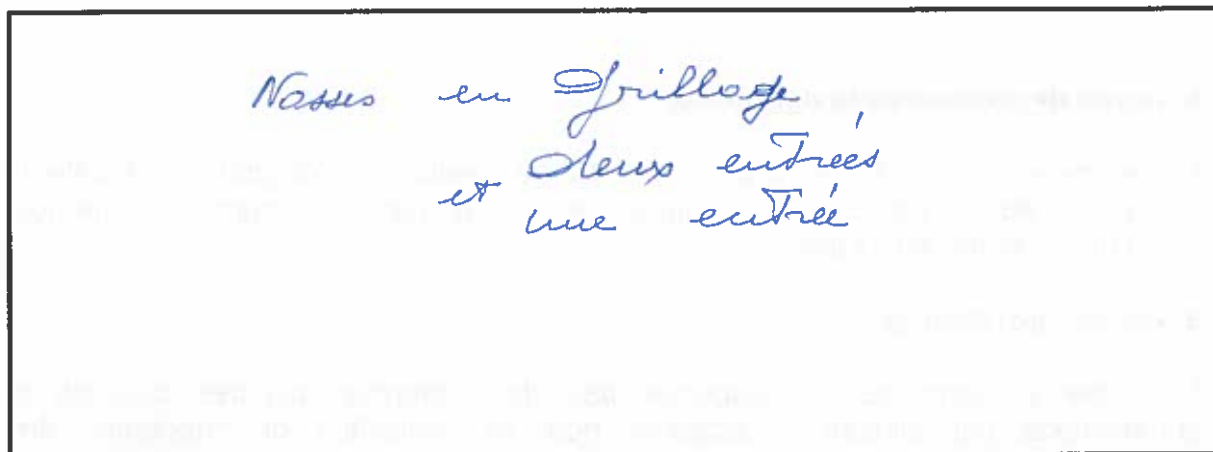 Nasses en grillage
deux entrées
et
une entrée